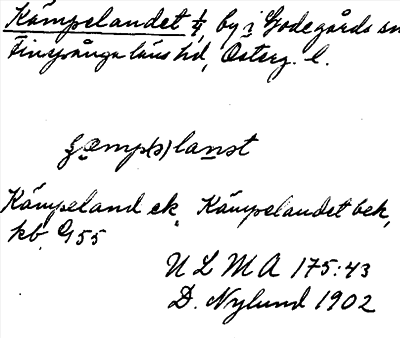 Kämpelandet ¼, by i Godegårds sn
Finspånga läns hd, Österg. l.
ʒæmp(ə)lanst
Kämpeland ek, Kämpelandet bek,
kb G 55
U L M A 175:43
D. Nylund 1902